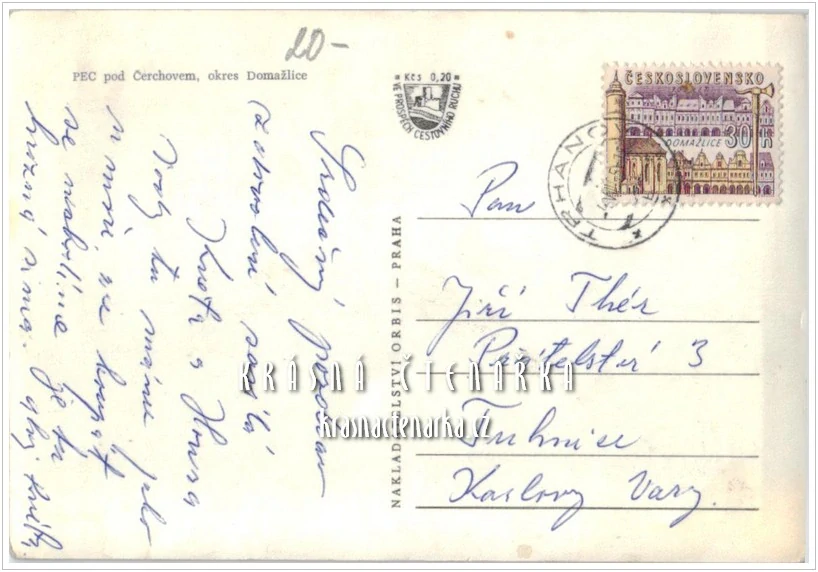 20-
PEC pod Čerchovem, okres Domažlice
Kčs 0,20
VE PROSPĚCH CESTOVNÍHO RUCHU
ČESKOSLOVENSKO
DOMAŽLICE
30 h
TRHANOV
NAKLADATELSTVÍ ORBIS – PRAHA
Srdečný pozdrav
z dovolení
a Hansa
Vody tu máme jako
u
se je tu
hrozný
Pan
Jiří Thér
Přátelství 3
Tuhnice
Karlovy Vary.
KRÁSNÁ ČTENÁŘKA
krasnactenarka.cz